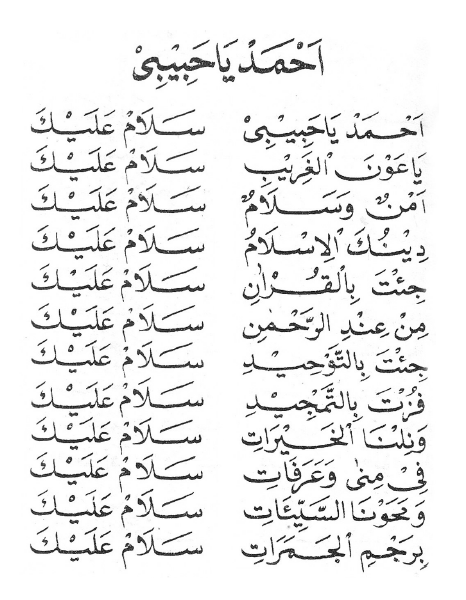 اَحْمَدْ يَا حَبِيْبِيْ
اَحْمَدْ يَا حَبِيْبِيْ سَلَامْ عَلَيْكَ
يَا عَوْنَ الْغَرِيْبِ سَلَامْ عَلَيْكَ
اَمْنٌ وَسَلَامٌ سَلَامْ عَلَيْكَ
دِيْنُكَ الْاِسْلَامُ سَلَامْ عَلَيْكَ
جِئْتَ بِالْقُرْاٰنِ سَلَامْ عَلَيْكَ
مِنْ عِنْدِ الرَّحْمٰنِ سَلَامْ عَلَيْكَ
جِئْتَ بِالتَّوْحِيْدِ سَلَامْ عَلَيْكَ
فُزْتَ بِالتَّمْجِيْدِ سَلَامْ عَلَيْكَ
وَنِلْنَا الْخَيْرَاتِ سَلَامْ عَلَيْكَ
فِيْ مِنٰى وَعَرَفَاتِ سَلَامْ عَلَيْكَ
وَمَحَوْنَا السَّيِّئَاتِ سَلَامْ عَلَيْكَ
بِرَجْمِ الْجَمَرَاتِ سَلَامْ عَلَيْكَ